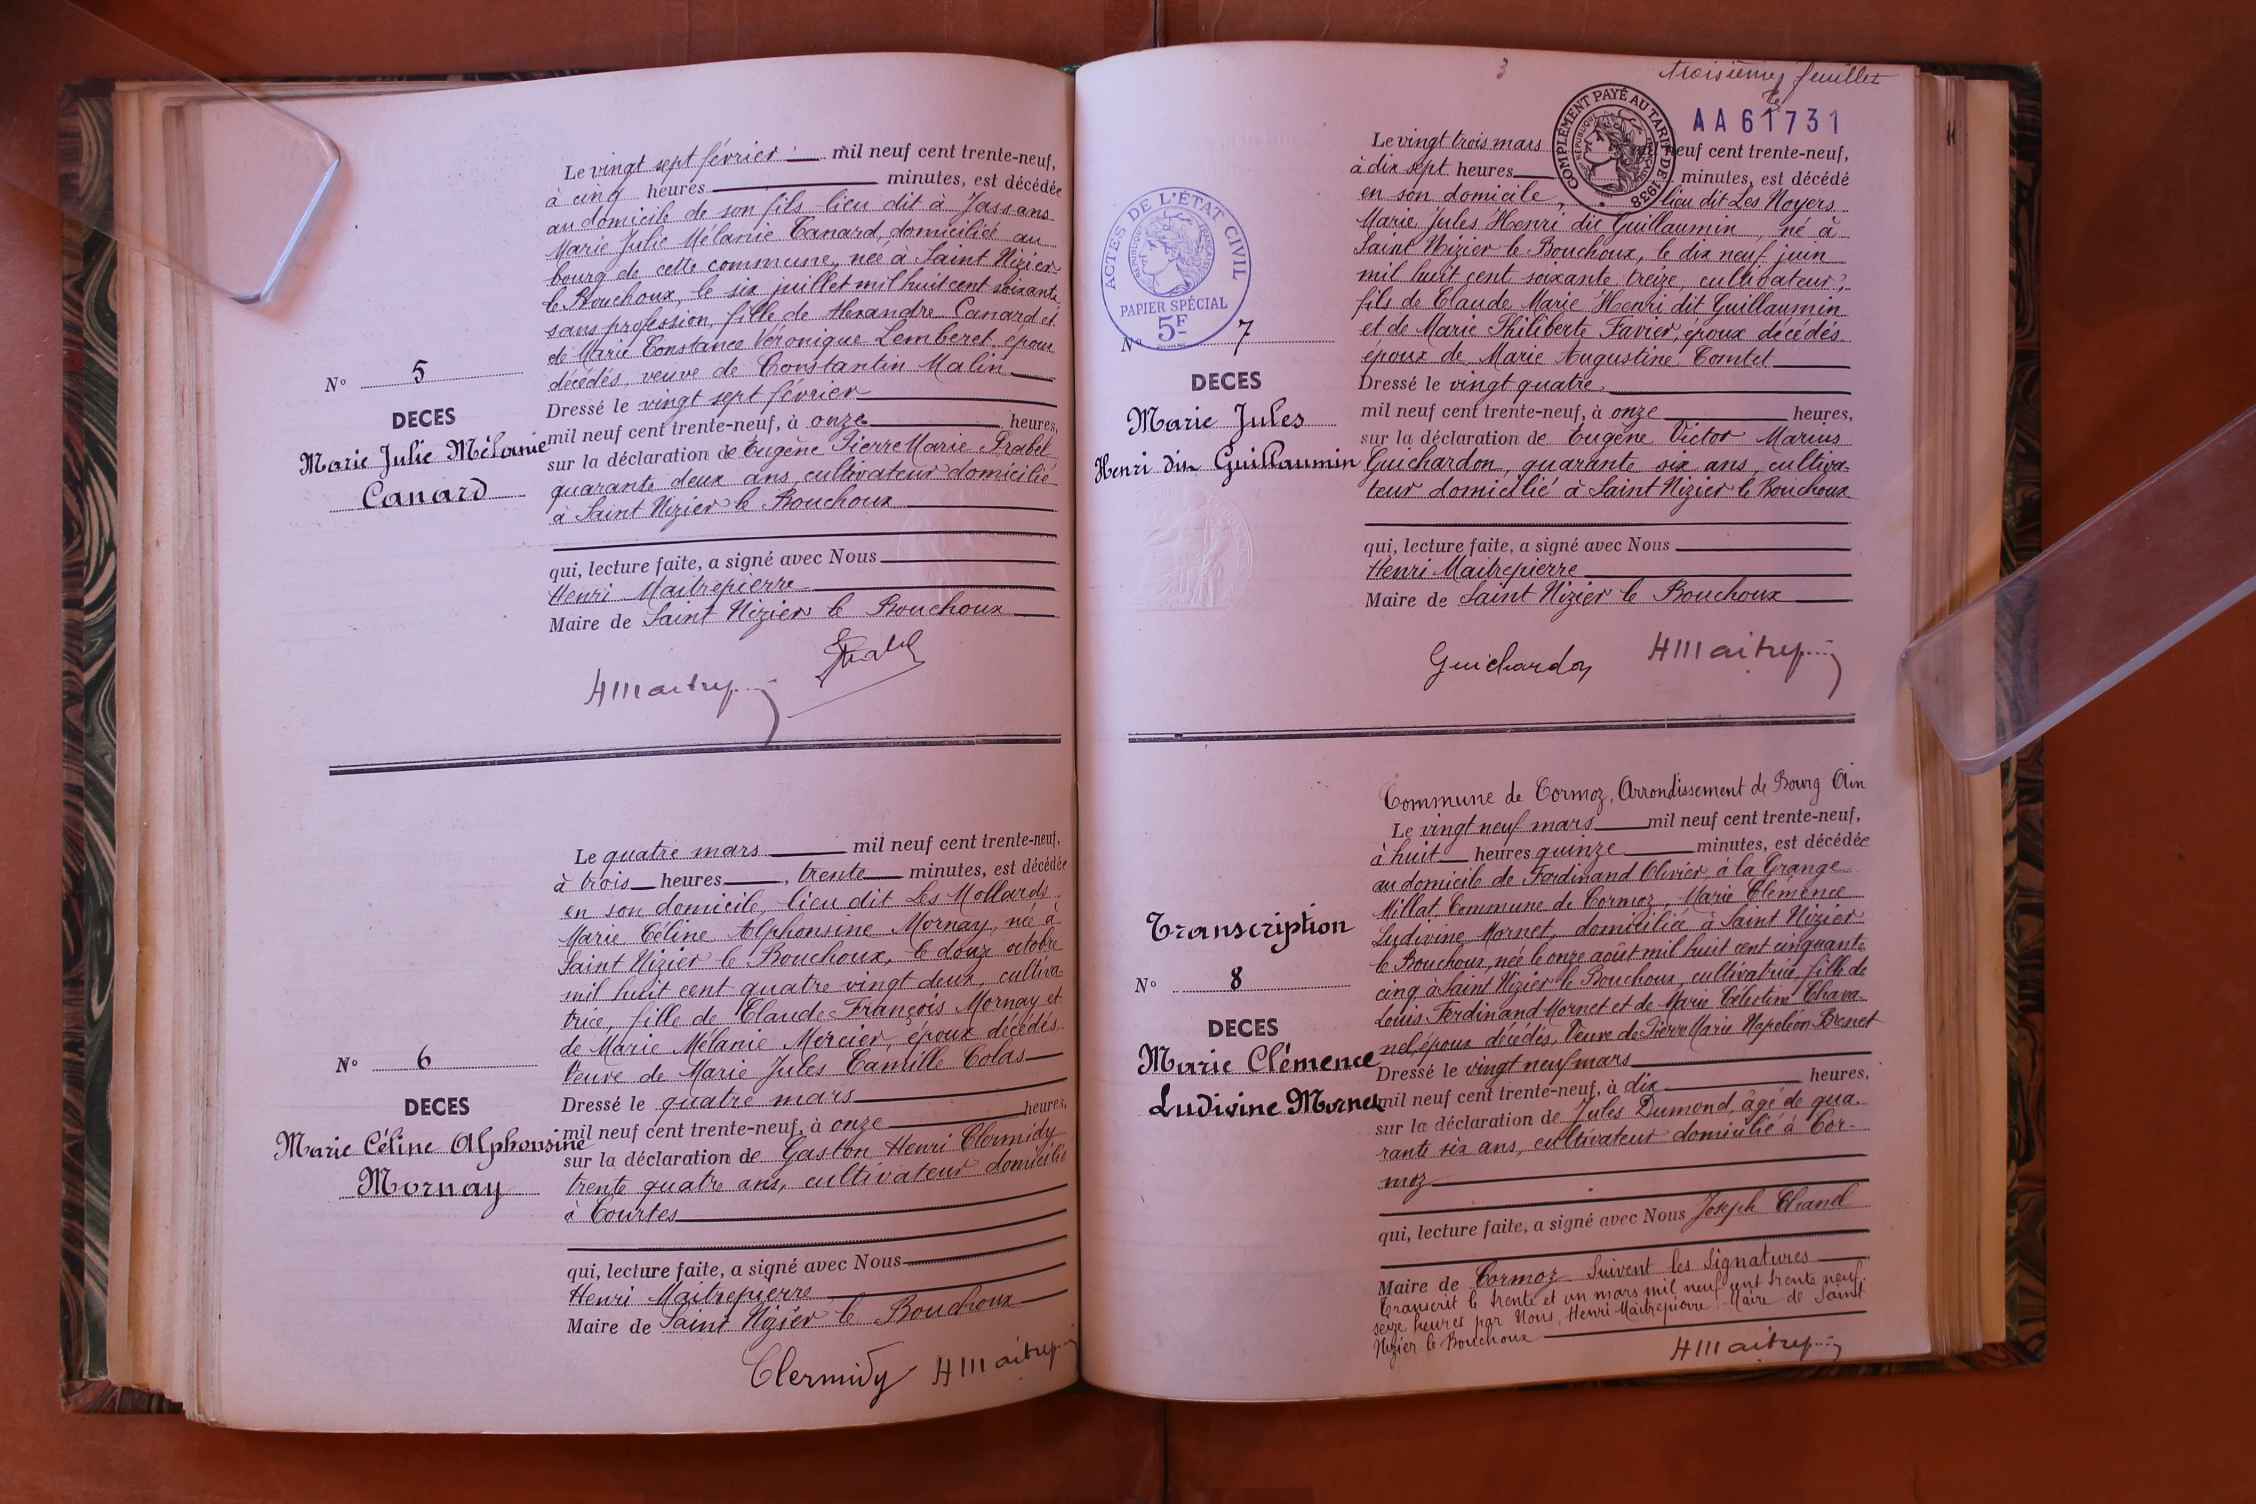 Le vingt sept février mil neuf cent trente-neuf,
à cinq heures minutes, est décédée
au domicile de son fils lieu dit à Jassans
Marie Julie Mélanie Canard, domiciliée au
bourg de cette commune, née à Saint Nizier
le Bouchoux, le six juillet mil huit cent soixante
sans profession, fille de Alexandre Canard et
de Marie Constance Véronique Lemberet, époux
décédés, veuve de Constantin Malin
Dressé le vingt sept février
mil neuf cent trente-neuf, à onze heures,
sur la déclaration de Eugène Pierre Marie Prabel
quarante deux ans, cultivateur domicilié
à Saint Nizier le Bouchoux
qui, lecture faite, a signé avec Nous
Henri Maitrepierre
Maire de Saint Nizier le Bouchoux
N° 5
DECES
Marie Julie Mélanie
Canard
Le quatre mars mil neuf cent trente-neuf,
à trois heures, trente minutes, est décédée
en son domicile, lieu dit Les Mollards
Marie Céline Alphonsine Mornay, née à
Saint Nizier le Bouchoux, le douze octobre
mil huit cent quatre vingt deux, cultiva-
trice, fille de Claude François Mornay et
de Marie Mélanie Mercier, époux décédés
Veuve de Marie Jules Camille Colas
Dressé le quatre mars
mil neuf cent trente-neuf, à onze heures,
sur la déclaration de Gaston Henri Clermidy
trente quatre ans, cultivateur domicilié
à Courtes
qui, lecture faite, a signé avec Nous
Henri Maitrepierre
Maire de Saint Nizier le Bouchoux
Clermidy
N° 6
DECES
Marie Céline Alphonsine
Mornay
3
troisième feuillet
AA61731
COMPLÉMENT PAYÉ AU TARIF DE 1938
ACTES DE L'ÉTAT CIVIL
PAPIER SPÉCIAL
5F
Le vingt trois mars neuf cent trente-neuf,
à dix sept heures minutes, est décédé
en son domicile, lieu dit Les Noyers
Marie Jules Henri dit Guillaumin, né à
Saint Nizier le Bouchoux, le dix neuf juin
mil huit cent soixante treize, cultivateur,
fils de Claude Marie Henri dit Guillaumin
et de Marie Philiberte Favier, époux décédés
époux de Marie Augustine Comtet
Dressé le vingt quatre
mil neuf cent trente-neuf, à onze heures,
sur la déclaration de Eugène Victor Marius
Guichardon, quarante six ans, cultiva-
teur domicilié à Saint Nizier le Bouchoux
qui, lecture faite, a signé avec Nous
Henri Maitrepierre
Maire de Saint Nizier le Bouchoux
Guichardon
N° 7
DECES
Marie Jules
Henri dit Guillaumin
Commune de Cormoz, Arrondissement de Bourg Ain
Le vingt neuf mars mil neuf cent trente-neuf,
à huit heures quinze minutes, est décédée
au domicile de Ferdinand Olivier, à la Grange
Millat, Commune de Cormoz, Marie Clémence
Ludivine Mornet, domiciliée à Saint Nizier
le Bouchoux, née le onze août mil huit cent cinquante
cinq à Saint Nizier le Bouchoux, cultivatrice, fille de
Louis Ferdinand Mornet et de Marie Célestine Chava-
nel, époux décédés, Veuve de Pierre Marie Napoléon Brenet
Dressé le vingt neuf mars
mil neuf cent trente-neuf, à dix heures,
sur la déclaration de Jules Dumond, âgé de qua-
rante six ans, cultivateur domicilié à Cor-
moz
qui, lecture faite, a signé avec Nous Joseph Chanel
Maire de Cormoz Suivent les Signatures
Transcrit le trente et un mars mil neuf cent trente neuf
seize heures par Nous, Henri Maitrepierre Maire de Saint
Nizier le Bouchoux
Transcription
N° 8
DECES
Marie Clémence
Ludivine Mornet